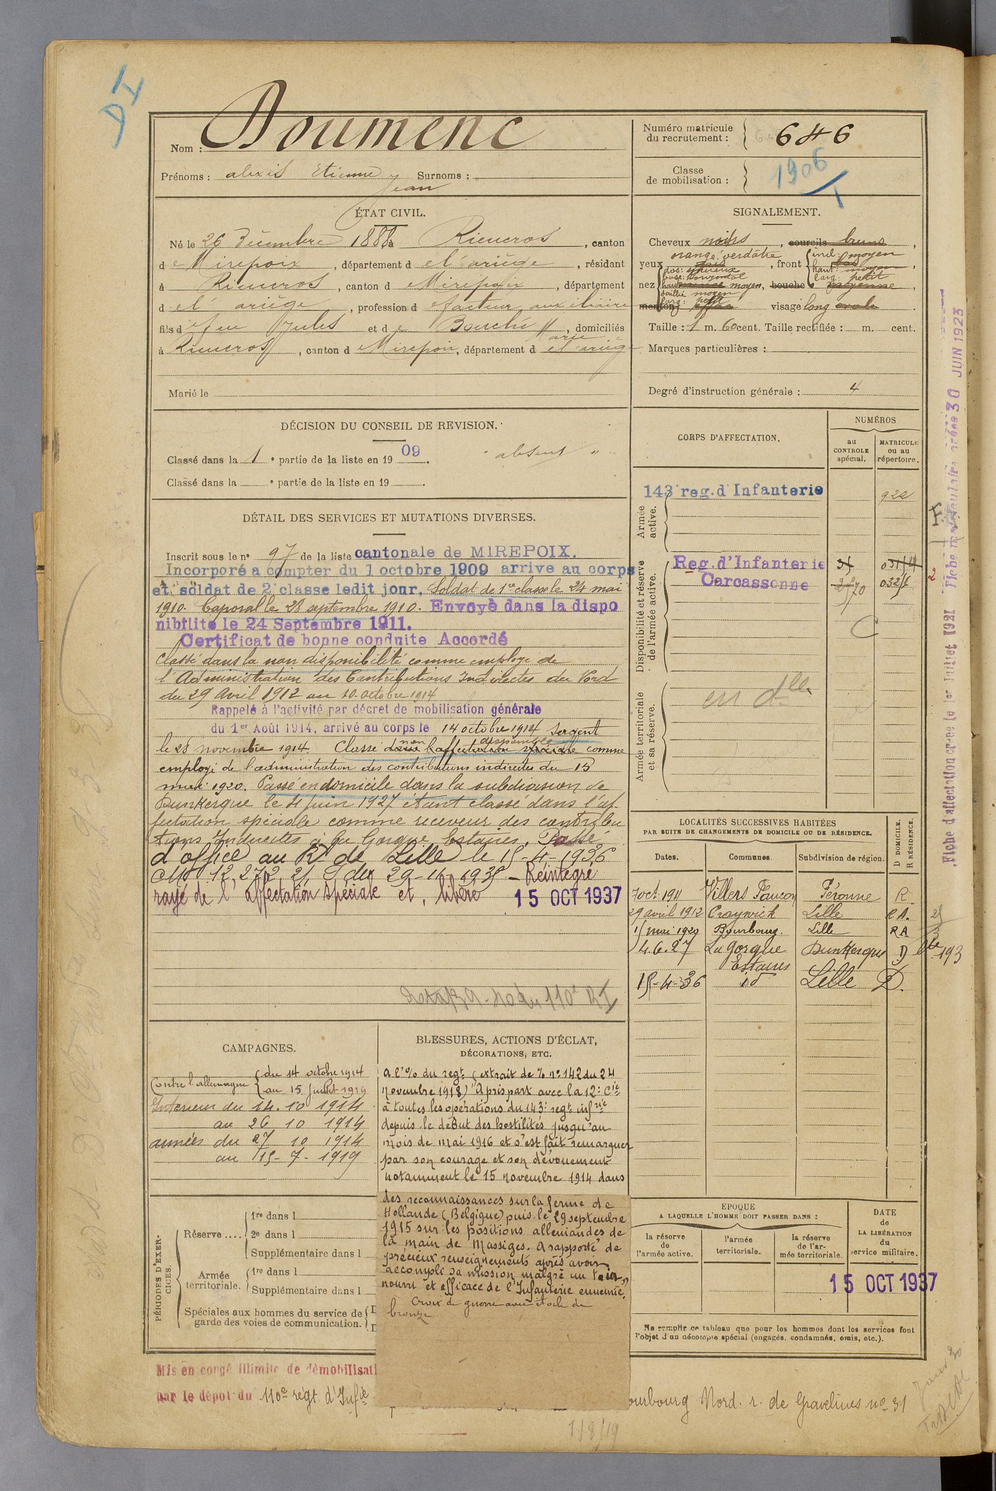 DI
Nom : Doumenc
Prénoms : alexis Etienne Jean Surnoms :
Numéro matricule du recrutement : 646
Classe de mobilisation : 1906
ÉTAT CIVIL.
Né le 26 Décembre 1888 à Rieucros, canton
de Mirepoix, département de l'ariège, résidant
à Rieucros, canton de Mirepoix, département
de l'ariège, profession de facteur auxiliaire
fils de feu Jules et de Bouchi Marie, domiciliés
à Rieucros, canton de Mirepoix, département de l'ariège
Marié le
SIGNALEMENT.
Cheveux noirs, sourcils bruns,
yeux orangé verdâtre, front incl: moyen
nez dos: sinueux base: horizontal moyen, bouche moyenne
menton visage long ovale
Taille : 1 m. 60 cent. Taille rectifiée : m. cent.
Marques particulières :
Degré d'instruction générale : 4
DÉCISION DU CONSEIL DE REVISION.
Classé dans la 1e partie de la liste en 1909. " absent "
Classé dans la e partie de la liste en 19 .
DÉTAIL DES SERVICES ET MUTATIONS DIVERSES.
Inscrit sous le n° 97 de la liste cantonale de MIREPOIX.
Incorporé a compter du 1 octobre 1909 arrive au corps
et soldat de 2e classe ledit jour, Soldat de 1re classe le 24 mai
1910. Caporal le 28 septembre 1910. Envoyé dans la dispo
nibilité le 24 Septembre 1911.
Certificat de bonne conduite Accordé
Classé dans la non disponibilité comme employé de
l'Administration des Contributions Indirectes du Nord
du 29 Avril 1912 au 10 octobre 1914
Rappelé à l'activité par décret de mobilisation générale
du 1er Août 1914, arrivé au corps le 14 octobre 1914 Sergent
le 23 novembre 1914 Classé dans l'affectation spéciale comme
non disponible
employé de l'administration des contributions indirectes du 15
mai 1920. Passé en domicile dans la subdivision de
Dunkerque le 4 juin 1927 étant classé dans l'af
fectation spéciale comme receveur des contribu
tions Indirectes à La Gorgue Estaires Passé
d'office au Rt de Lille le 15-4-1936
29-11-1935 - Réintégré
rayé de l'affectation spéciale et, libéré 15 OCT 1937
CORPS D'AFFECTATION.
NUMÉROS
au CONTROLE spécial.
MATRICULE ou au répertoire.
Armée active.
143e reg. d'Infanterie
Disponibilité et réserve de l'armée active.
Reg. d'Infanterie
Carcassonne
C
Armée territoriale et sa réserve.
LOCALITÉS SUCCESSIVES HABITÉES
PAR SUITE DE CHANGEMENTS DE DOMICILE OU DE RÉSIDENCE.
Dates. Communes. Subdivision de région. D DOMICILE. R RÉSIDENCE.
7 oct. 1911 Villers Faucon Péronne R.
29 avril 1912 Craywick Lille RA.
15 mai 1920 Bourbourg Lille RA
4.6.27 La Gorgue Estaires Dunkerque D
15-4-36 id Lille D.
CAMPAGNES.
Contre l'allemagne du 14 octobre 1914
au 15 juillet 1919
Intérieur du 14.10 1914
au 26 10 1914
armées du 27 10 1914
au 15-7-1919
BLESSURES, ACTIONS D'ÉCLAT,
DÉCORATIONS, ETC.
à l'% du regt (extrait de % n° 142 du 24
novembre 1918) "A pris part avec la 12e Cie
à toutes les opérations du 143e regt infrie
depuis le début des hostilités jusqu'au
mois de mai 1916 et s'est fait remarquer
par son courage et son dévouement
notamment le 15 novembre 1914 dans
des reconnaissances sur la ferme de
Hollande (Belgique) puis le 29 septembre
1915 sur les positions allemandes de
la main de Massiges. A rapporté de
précieux renseignements après avoir
accompli sa mission malgré un feu
nourri et efficace de l'Infanterie ennemie."
Croix de guerre avec étoile de
bronze
PÉRIODES D'EXERCICES.
Réserve .... 1re dans l
2e dans l
Supplémentaire dans l
Armée territoriale. 1re dans l
Supplémentaire dans l
Spéciales aux hommes du service de
garde des voies de communication.
ÉPOQUE
A LAQUELLE L'HOMME DOIT PASSER DANS :
la réserve de l'armée active.
l'armée territoriale.
la réserve de l'armée territoriale.
DATE de LA LIBÉRATION du service militaire.
15 OCT 1937
Ne remplir ce tableau que pour les hommes dont les services font
l'objet d'un décompte spécial (engagés, condamnés, omis, etc.).
Mis en congé illimité de démobilisati
par le dépôt du 110e regt d'Infie
ourbourg Nord. r. de Gravelines n° 31
1/8/19
Fiche d'affectation créée le 1er Juillet 1921
30 JUIN 1923